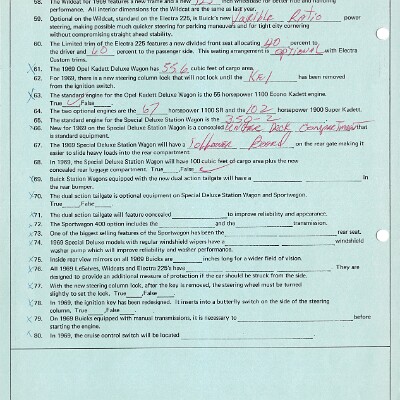 58. The Wildcat for 1969 features a new frame and a new 123 inch wheelbase for better ride and handling
performance. All interior dimensions for the Wildcat are the same as last year.
59. Optional on the Wildcat, standard on the Electra 225, is Buick's new Varible Ratio power
steering, making possible much quicker steering for parking maneuvers and for tight city cornering
without compromising straight ahead stability.
60. The Limited trim of the Electra 225 features a new divided front seat allocating 40 percent to
the driver and 60 percent to the passenger side. This seating arrangement is optional with Electra
Custom trims.
61. The 1969 Opel Kadett Deluxe Wagon has 55.6 cubic feet of cargo area.
62. For 1969, there is a new steering column lock that will not lock until the Key has been removed
from the ignition switch.
63. The standard engine for the Opel Kadett Deluxe Wagon is the 55 horsepower 1100 Econo Kadett engine.
True ✓ False
64. The two optional engines are the 67 horsepower 1100 SR and the 102 horsepower 1900 Super Kadett.
65. The standard engine for the Special Deluxe Station Wagon is the 350-2
66. New for 1969 on the Special Deluxe Station Wagon is a concealed Under Deck Compartment that
is standard equipment.
67. The 1969 Special Deluxe Station Wagon will have a Board on the rear gate making it
easier to slide heavy loads into the rear compartment.
68. In 1969, the Special Deluxe Station Wagon will have 100 cubic feet of cargo area plus the new
concealed rear luggage compartment. True False
69. Buick Station Wagons equipped with the new dual action tailgate will have a in
the rear bumper.
70. The dual action tailgate is optional equipment on Special Deluxe Station Wagon and Sportwagon.
True False
71. The dual action tailgate will feature concealed to improve reliability and appearance.
72. The Sportwagon 400 option includes the and the transmission.
73. One of the biggest selling features of the Sportwagon has been the rear seat.
74. 1969 Special Deluxe models with regular windshield wipers have a windshield
washer pump which will improve reliability and washer performance.
75. Inside rear view mirrors on all 1969 Buicks are inches long for a wider field of vision.
76. All 1969 LeSabres, Wildcats and Electra 225's have They are
designed to provide an additional measure of protection if the car should be struck from the side.
77. With the new steering column lock, after the key is removed, the steering wheel must be turned
slightly to set the lock. True False
78. In 1969, the ignition key has been redesigned. It inserts into a butterfly switch on the side of the steering
column. True False
79. On 1969 Buicks equipped with manual transmissions, it is necessary to before
starting the engine.
80. In 1969, the cruise control switch will be located